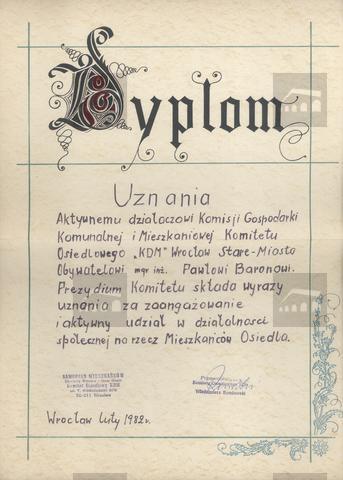 Dyplom
Uznania
Aktywnemu działaczowi Komisji Gospodarki
Komunalnej i Mieszkaniowej Komitetu
Osiedlowego „KDM" Wrocław Stare-Miasto
Obywatelowi mgr inż. Pawłowi Baranowi.
Prezydium Komitetu składa wyrazy
uznania za zaangażowanie
i aktywny udział w działalnosci
społecznej na rzecz Mieszkańców Osiedla.
SAMORZĄD MIESZKAŃCÓW
Komitet Osiedlowy KDM
Wrocław luty 1982r.